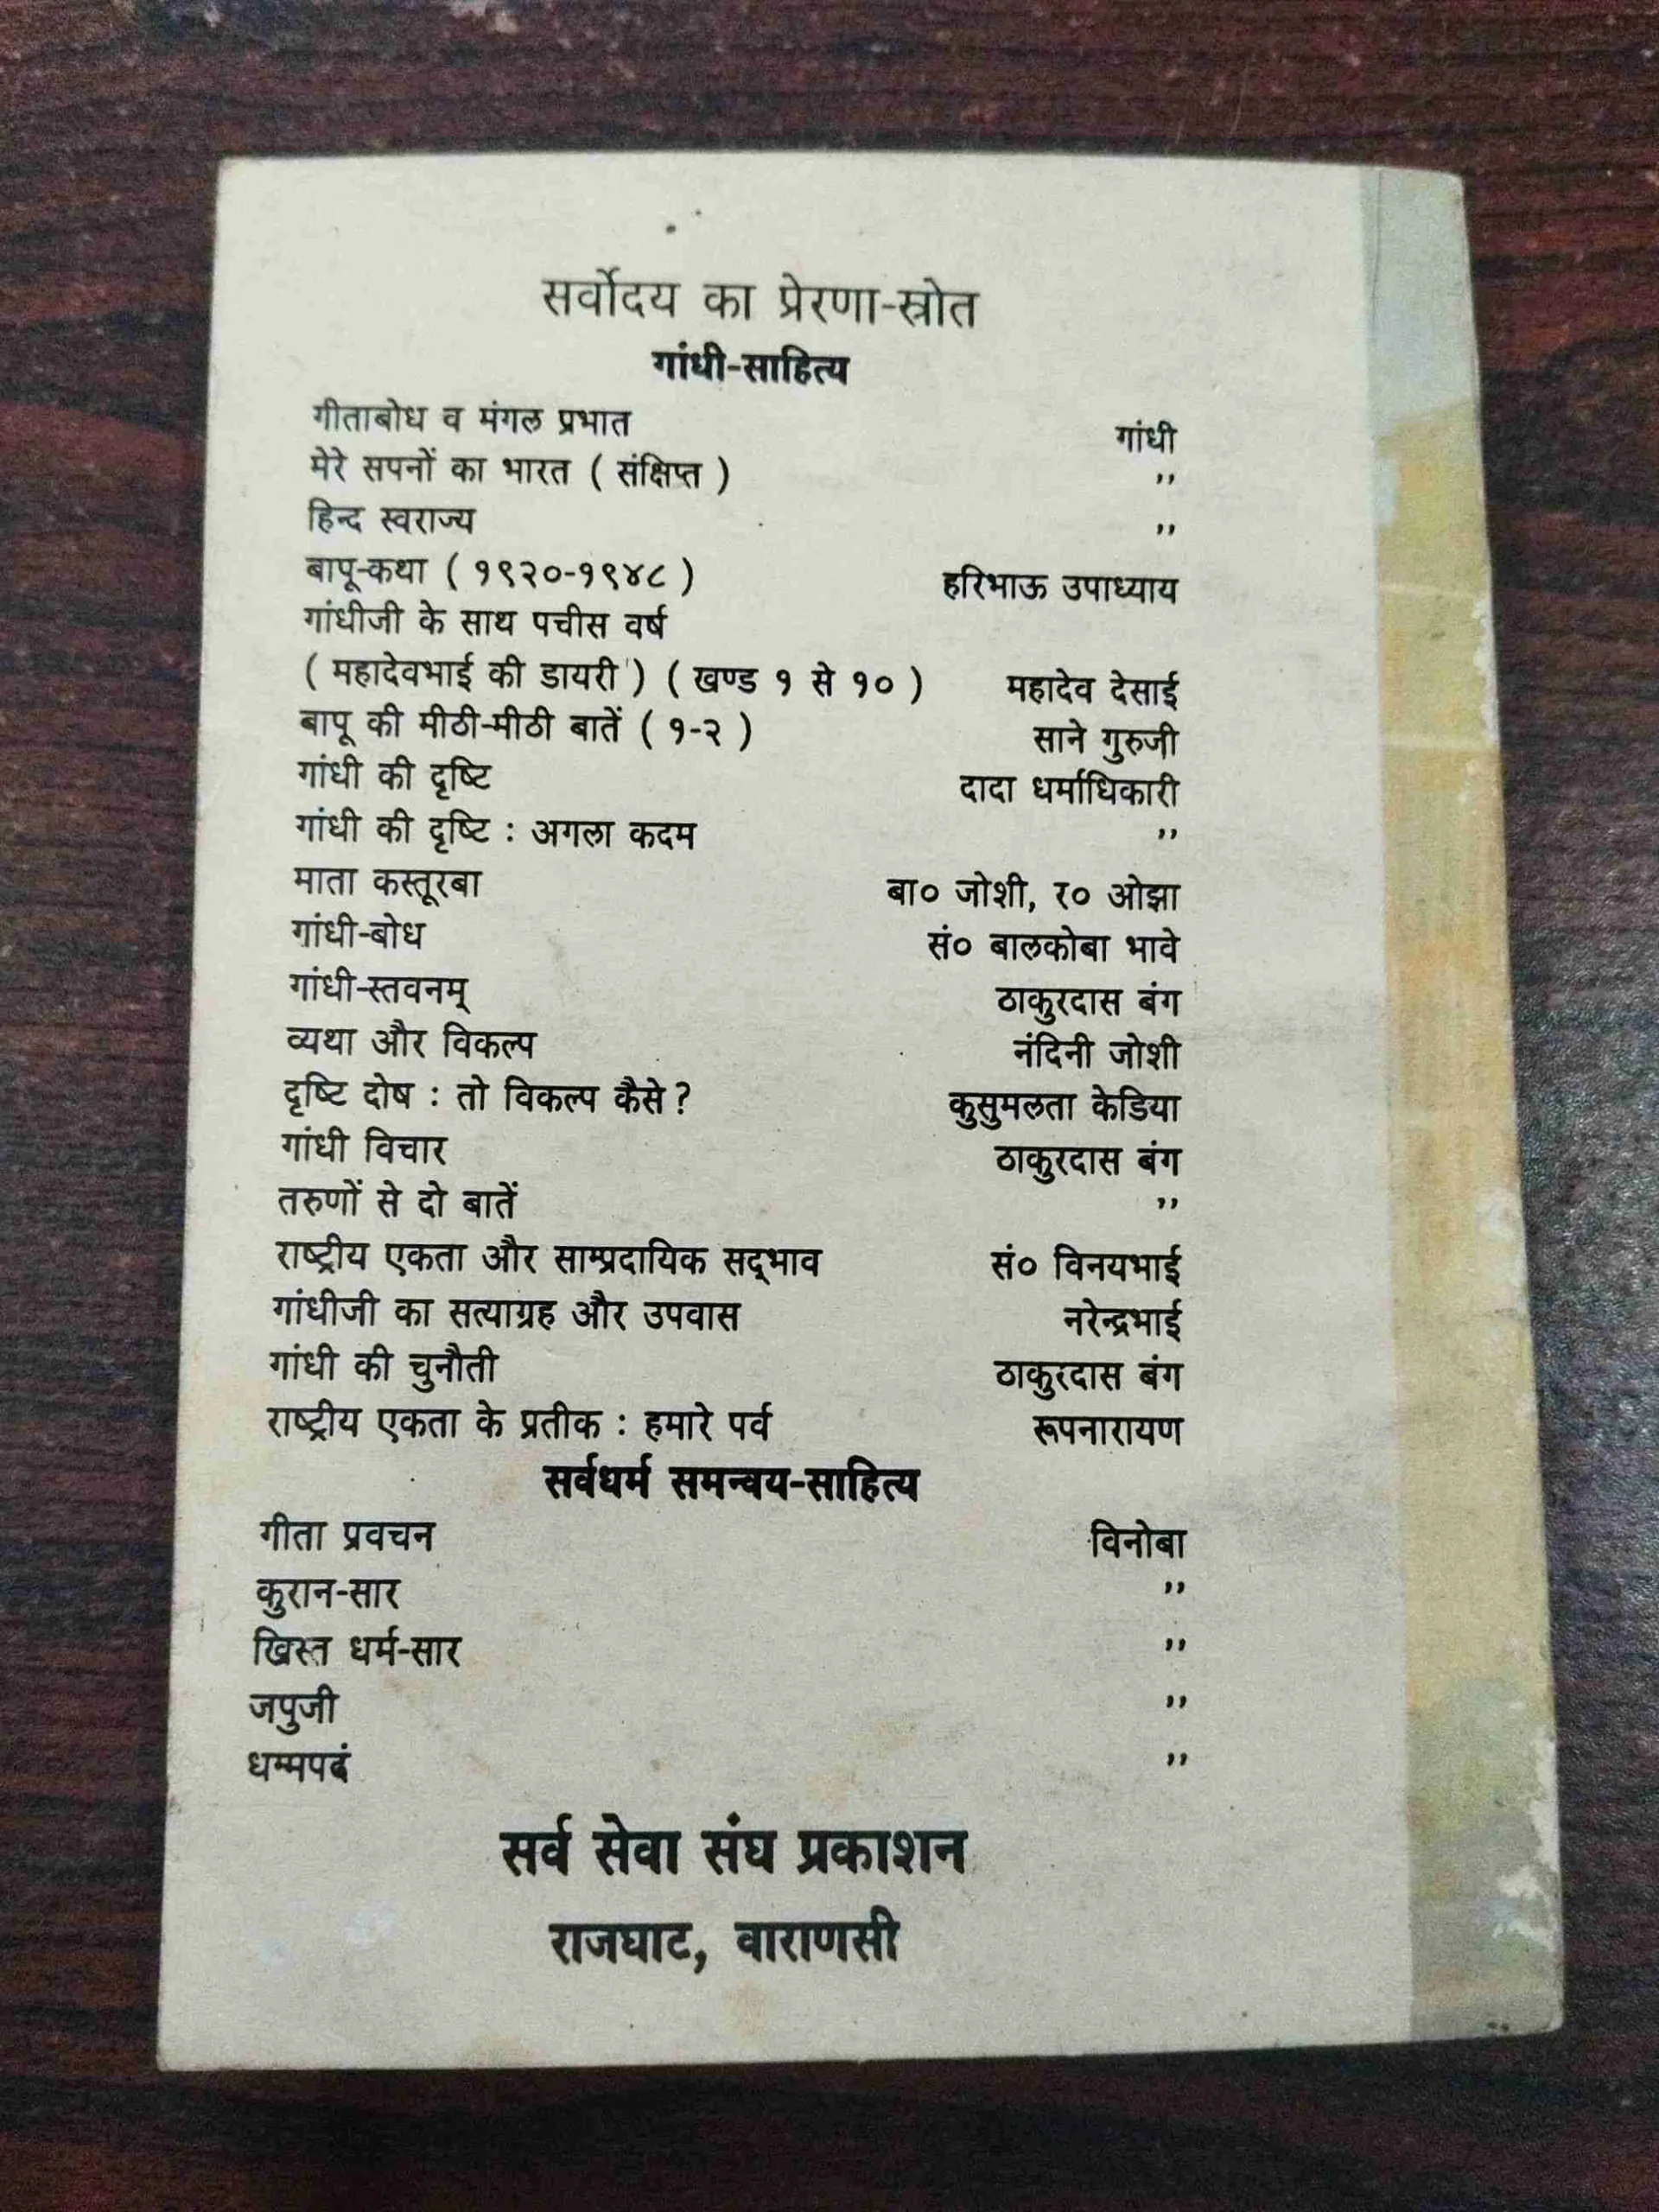 सर्वोदय का प्रेरणा-स्रोत
गांधी-साहित्य
गीताबोध व मंगल प्रभात गांधी
मेरे सपनों का भारत ( संक्षिप्त ) ,,
हिन्द स्वराज्य ,,
बापू-कथा ( १९२०-१९४८ ) हरिभाऊ उपाध्याय
गांधीजी के साथ पचीस वर्ष
( महादेवभाई की डायरी ) ( खण्ड १ से १० ) महादेव देसाई
बापू की मीठी-मीठी बातें ( १-२ ) साने गुरुजी
गांधी की दृष्टि दादा धर्माधिकारी
गांधी की दृष्टि : अगला कदम ,,
माता कस्तूरबा बा० जोशी, र० ओझा
गांधी-बोध सं० बालकोबा भावे
गांधी-स्तवनम् ठाकुरदास बंग
व्यथा और विकल्प नंदिनी जोशी
दृष्टि दोष : तो विकल्प कैसे ? कुसुमलता केडिया
गांधी विचार ठाकुरदास बंग
तरुणों से दो बातें ,,
राष्ट्रीय एकता और साम्प्रदायिक सद्‌भाव सं० विनयभाई
गांधीजी का सत्याग्रह और उपवास नरेन्द्रभाई
गांधी की चुनौती ठाकुरदास बंग
राष्ट्रीय एकता के प्रतीक : हमारे पर्व रूपनारायण
सर्वधर्म समन्वय-साहित्य
गीता प्रवचन विनोबा
कुरान-सार ,,
ख्रिस्त धर्म-सार ,,
जपुजी ,,
धम्मपदं ,,
सर्व सेवा संघ प्रकाशन
राजघाट, वाराणसी